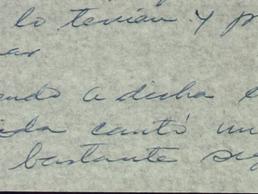 lo tenían y p
ar
endo a dicha e
ida cantó un
bastante seg